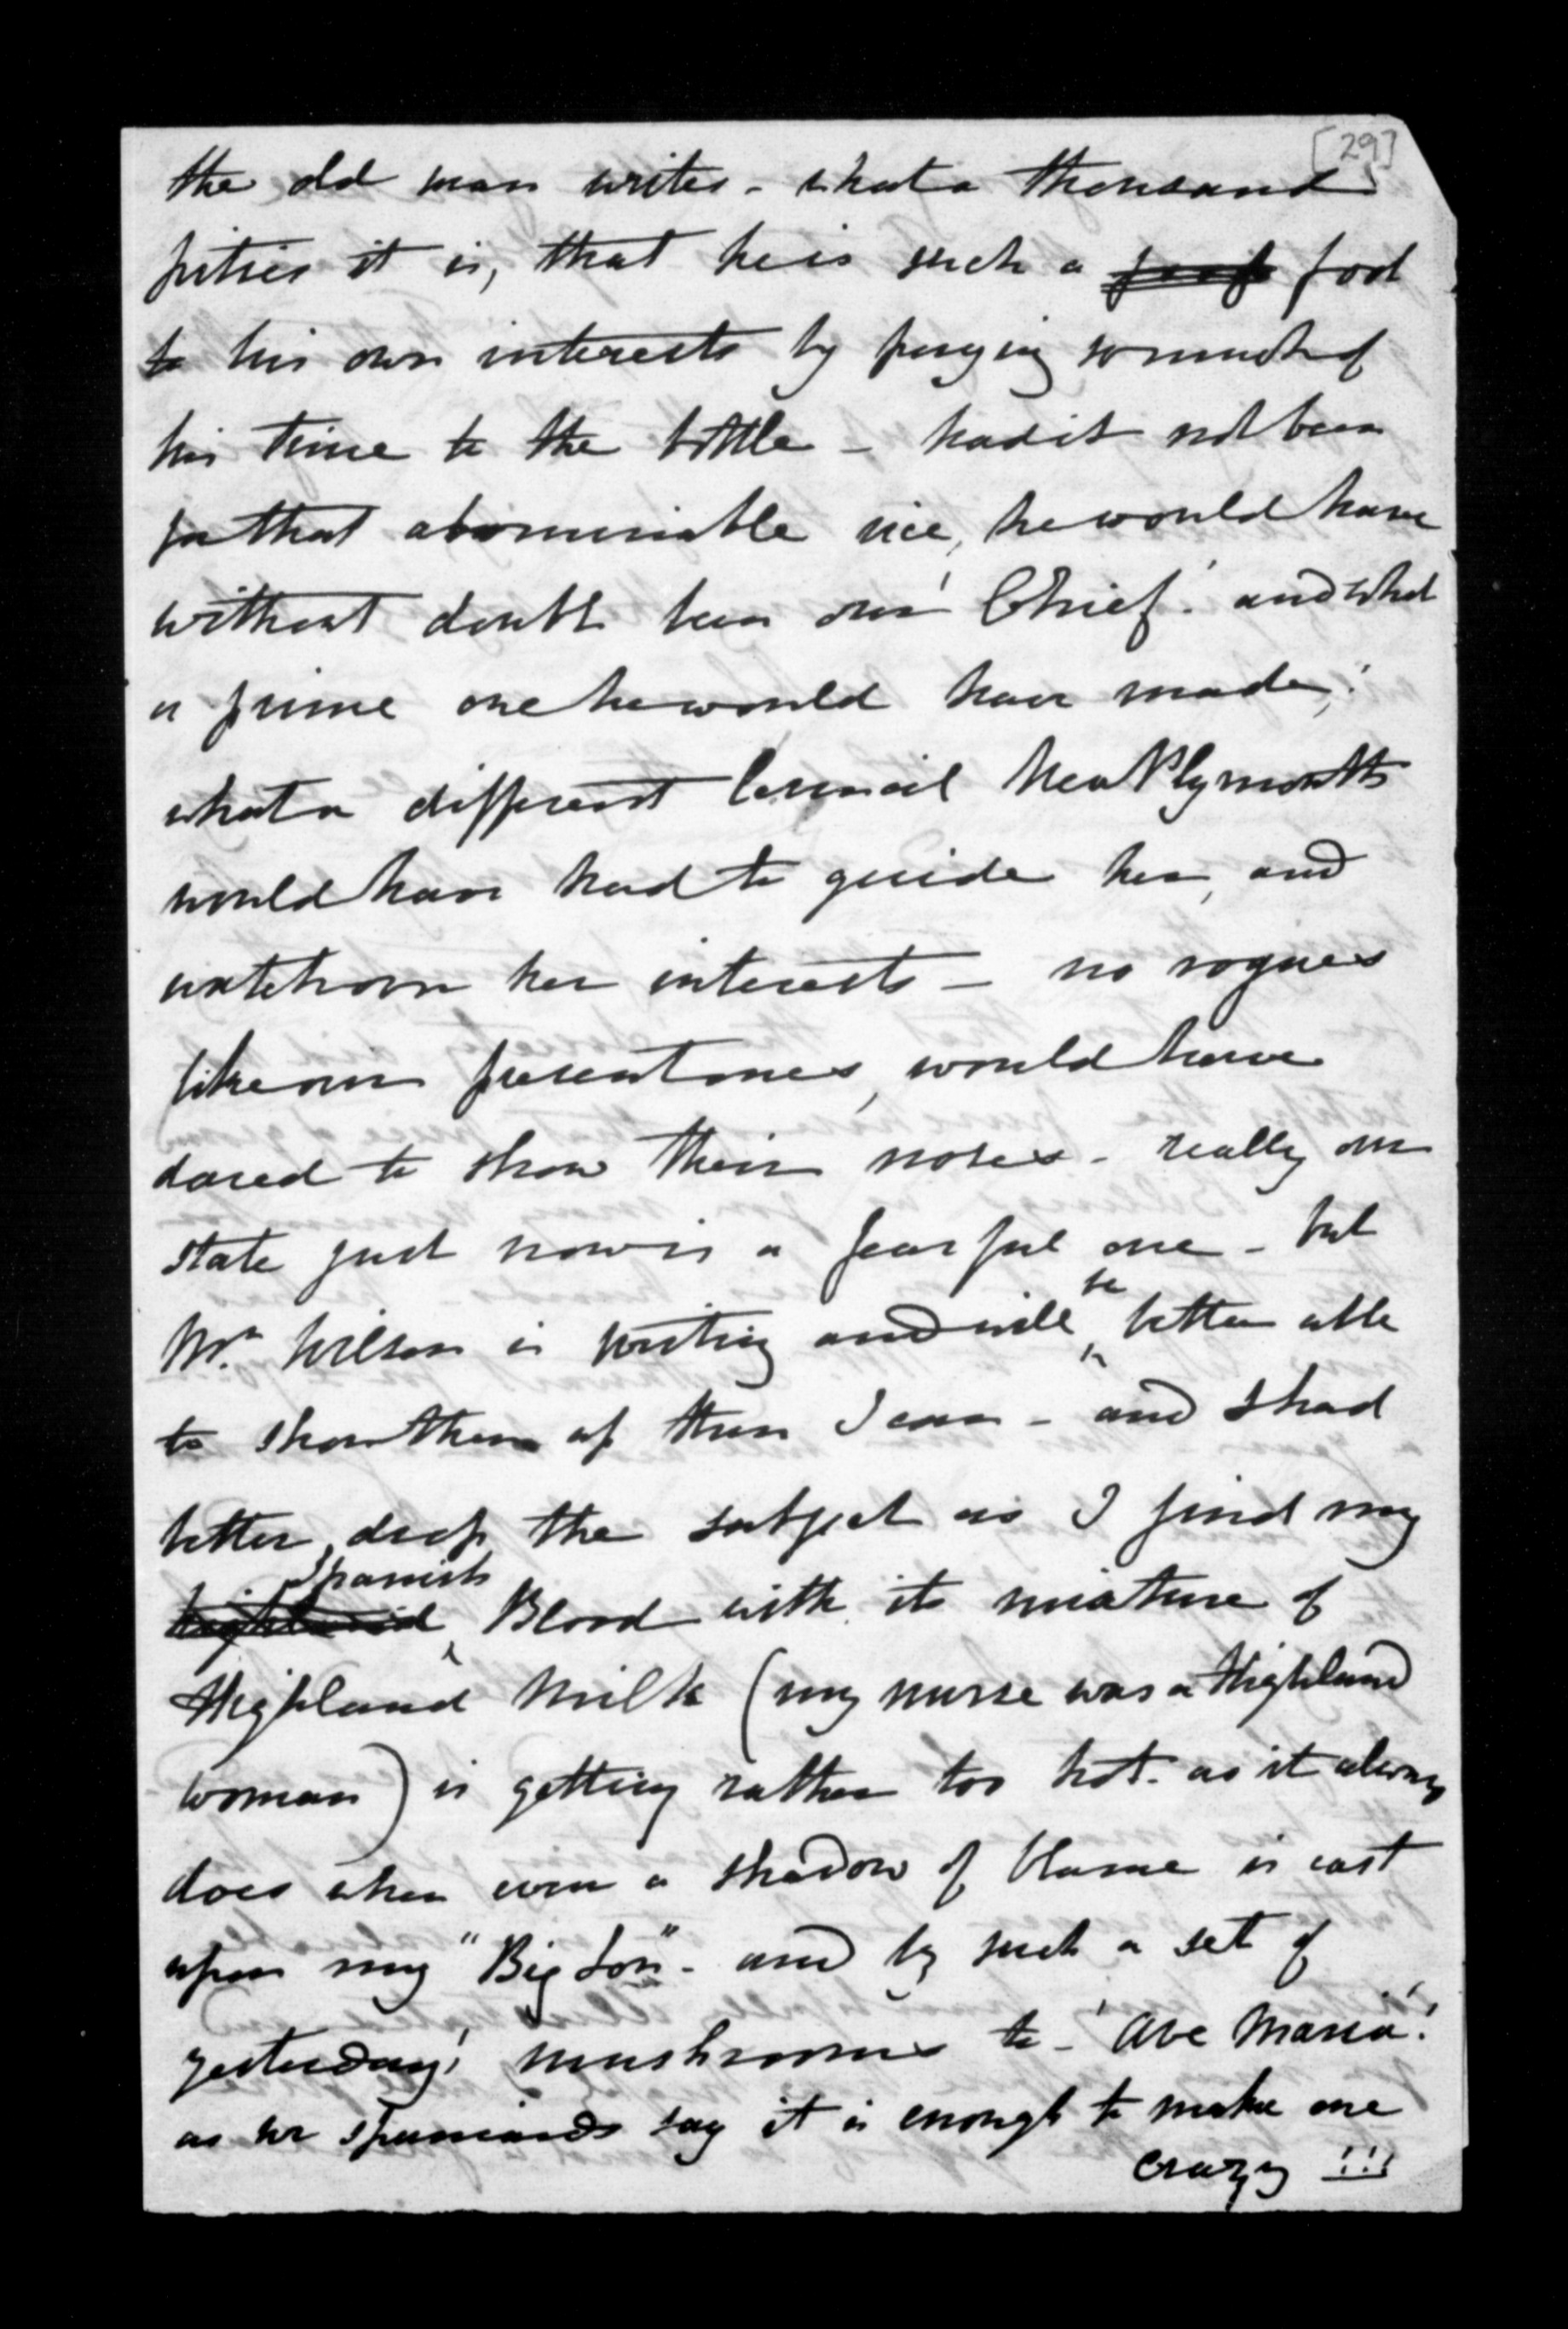 [29]
the old man writes - what a thousand
pities it is, that he is such a fool
to his own interests by paying so much of
his time to the bottle - had it not been
for that abominable vice, he would have
without doubt been our 'Chief'. and what
a prime one he would have made!
what a different Council New Plymouth
would have had to guide her, and
watch over her interests - no rogues
like our present ones, would have
dared to show their noses - really our
state just now is a fearful one - but
Mr. Wilson is writing and will be better able
to show them up than I can - and I had
better drop the subject as I find my
highland Spanish Blood with its mixture of
Highland Milk (my nurse was a Highland
woman) is getting rather too hot. as it always
does when even a shadow of blame is cast
upon my "Big Son" - and by such a set of
yesterday's mushrooms to - 'Ave Maria'!
as we Spaniards say it is enough to make one
crazy !!!